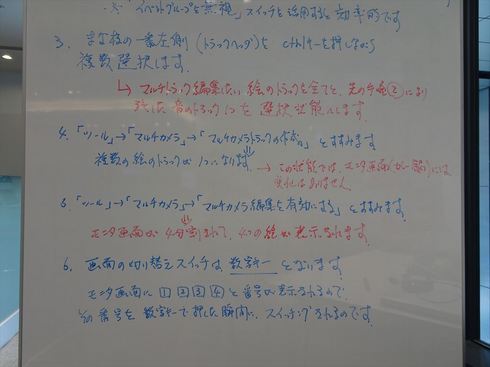 ※ 「イベントグループを無視」スイッチを活用すると効率的です
3. まな板の一番左側(トラックヘッダ)を ctrlキーを押しながら
複数選択します。
↳ マルチトラック編集したい絵のトラックを全てと、先の手順②により
残した音のトラック1つを選択状態にします。
4. 「ツール」→「マルチカメラ」→「マルチカメラトラックの作成」とすすみます。
複数の絵のトラックが1つになります
→ この状態では、モニタ画面(プレビュー)には
変化はありません
5. 「ツール」→「マルチカメラ」→「マルチカメラ編集を有効にする」とすすみます。
モニタ画面が4分割されて、4つの絵が表示されます。
6. 画面の切り替えスイッチは数字キーとなります。
モニタ画面に 1 2 3 4 と番号が表示されるので
その番号を数字キーで押した瞬間に、スイッチングされるのです。